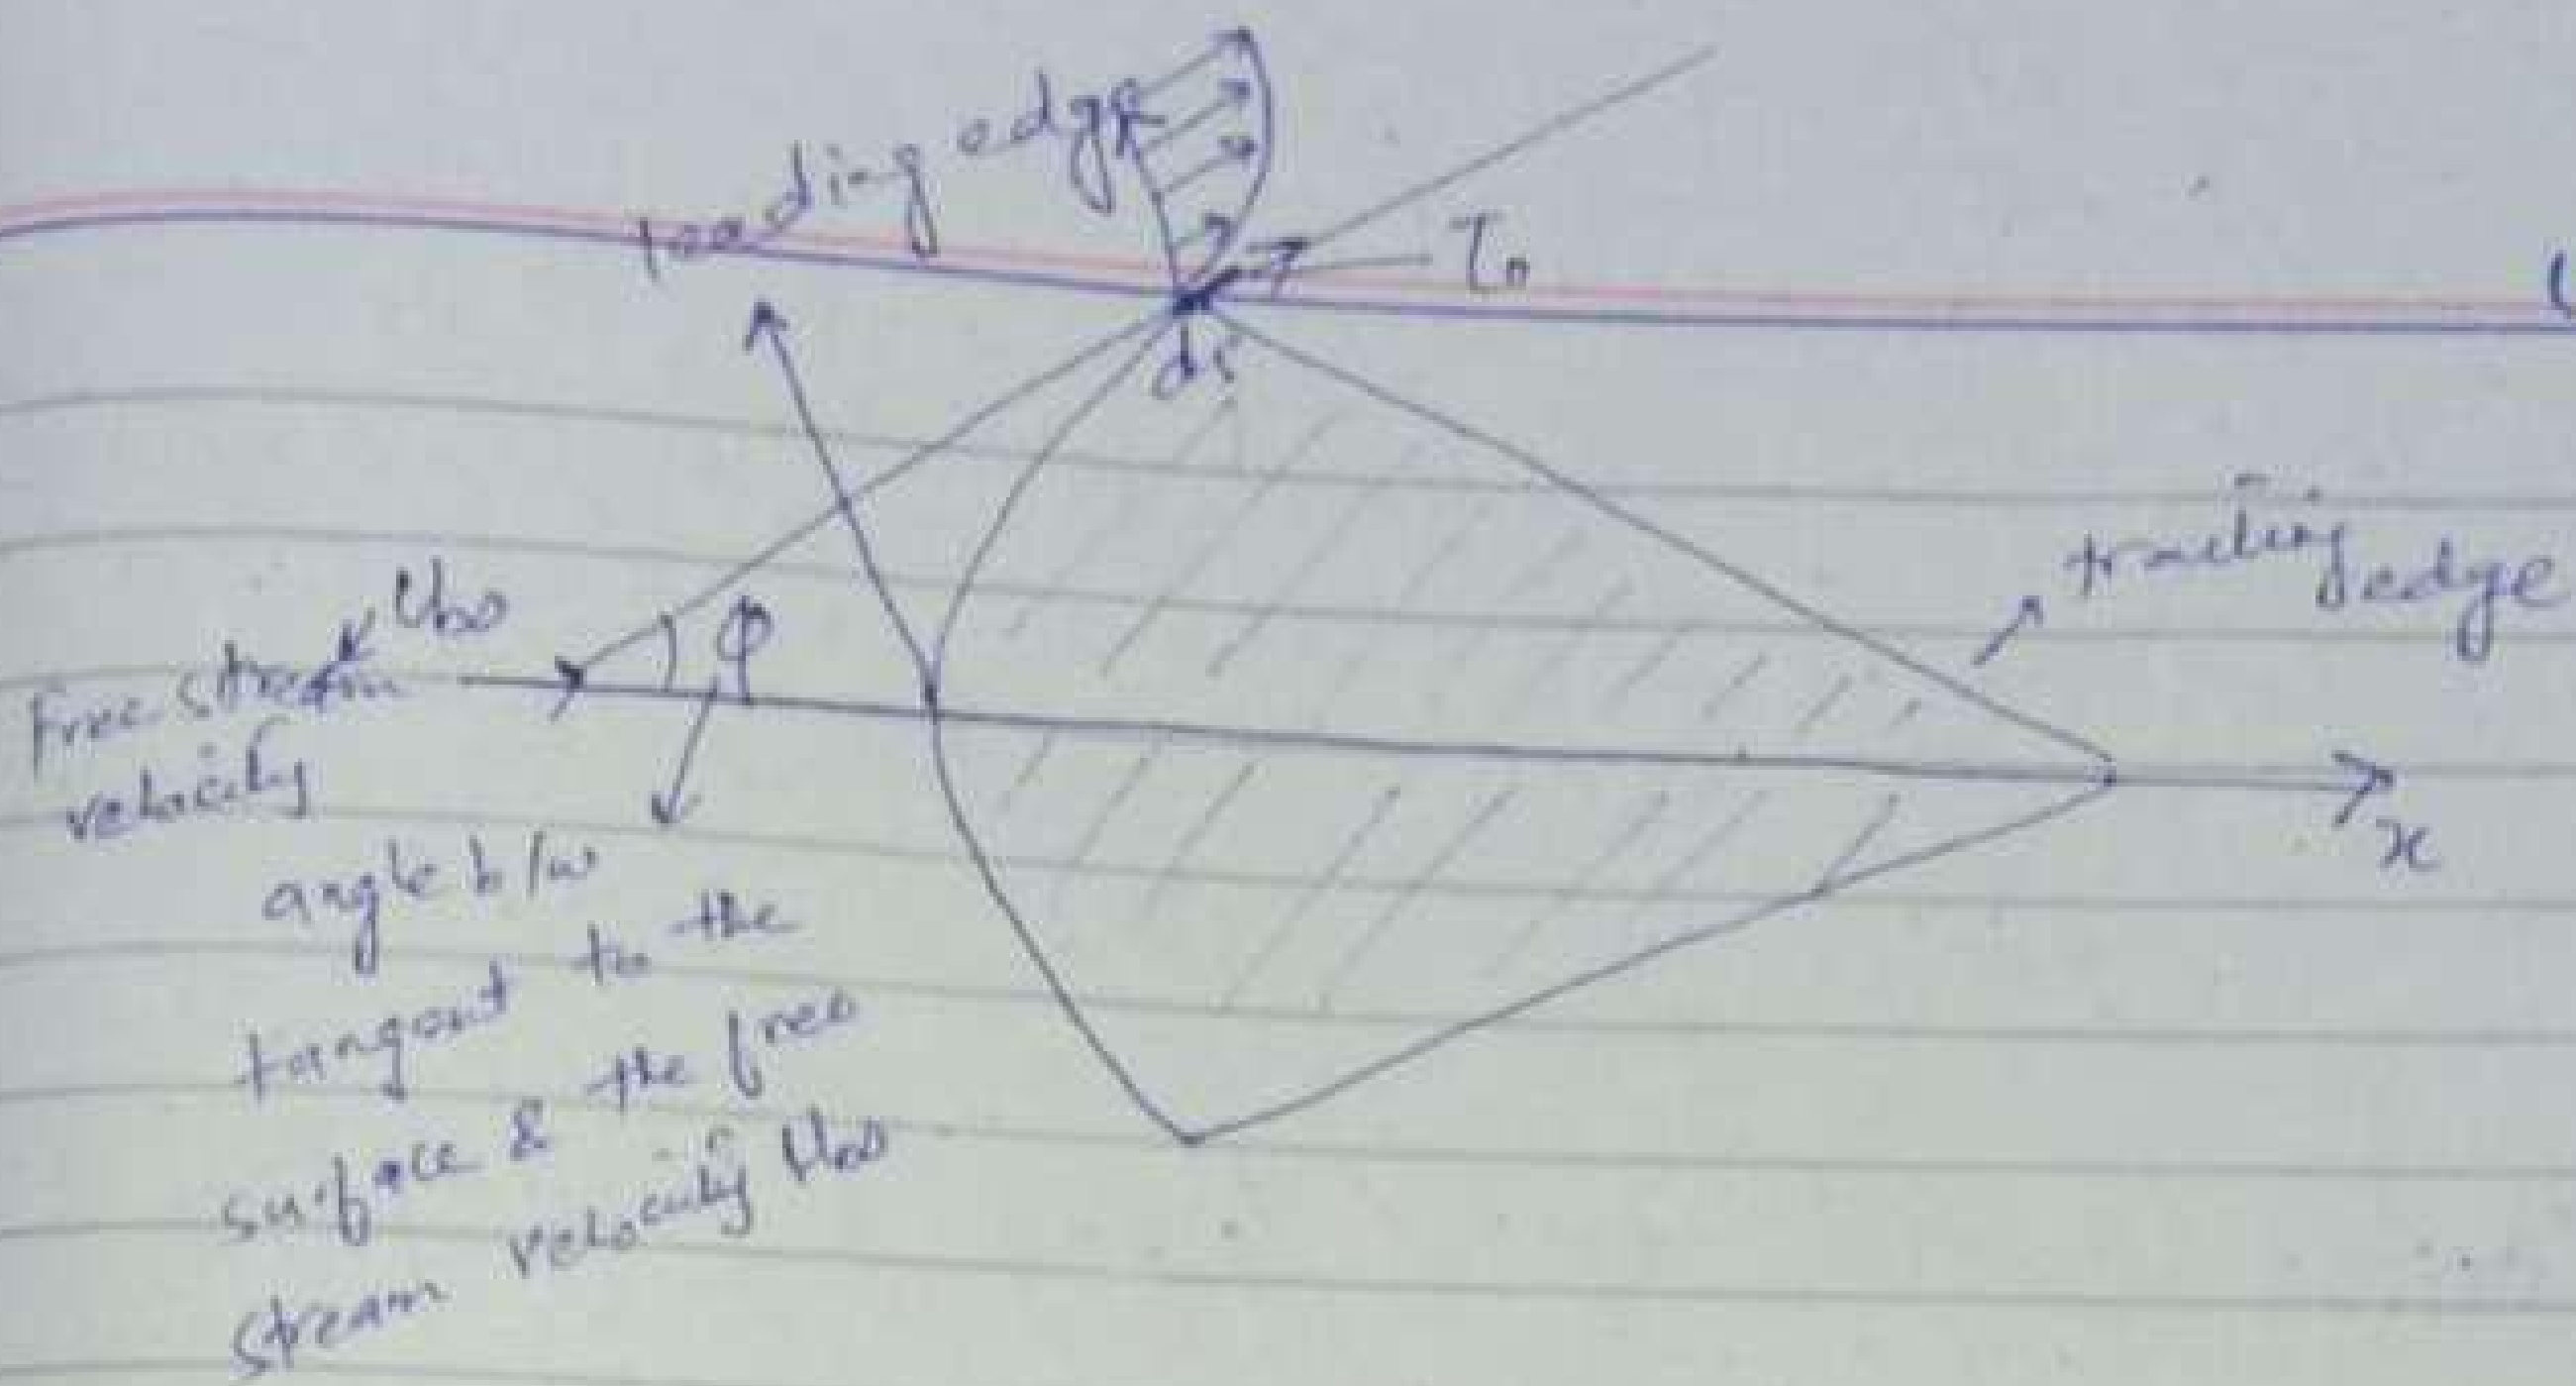 leading edge
τo
ds
trailing
edge
U∞
free stream
velocity
φ
x
angle b/w
tangent to the
surface & the free
stream velocity U∞